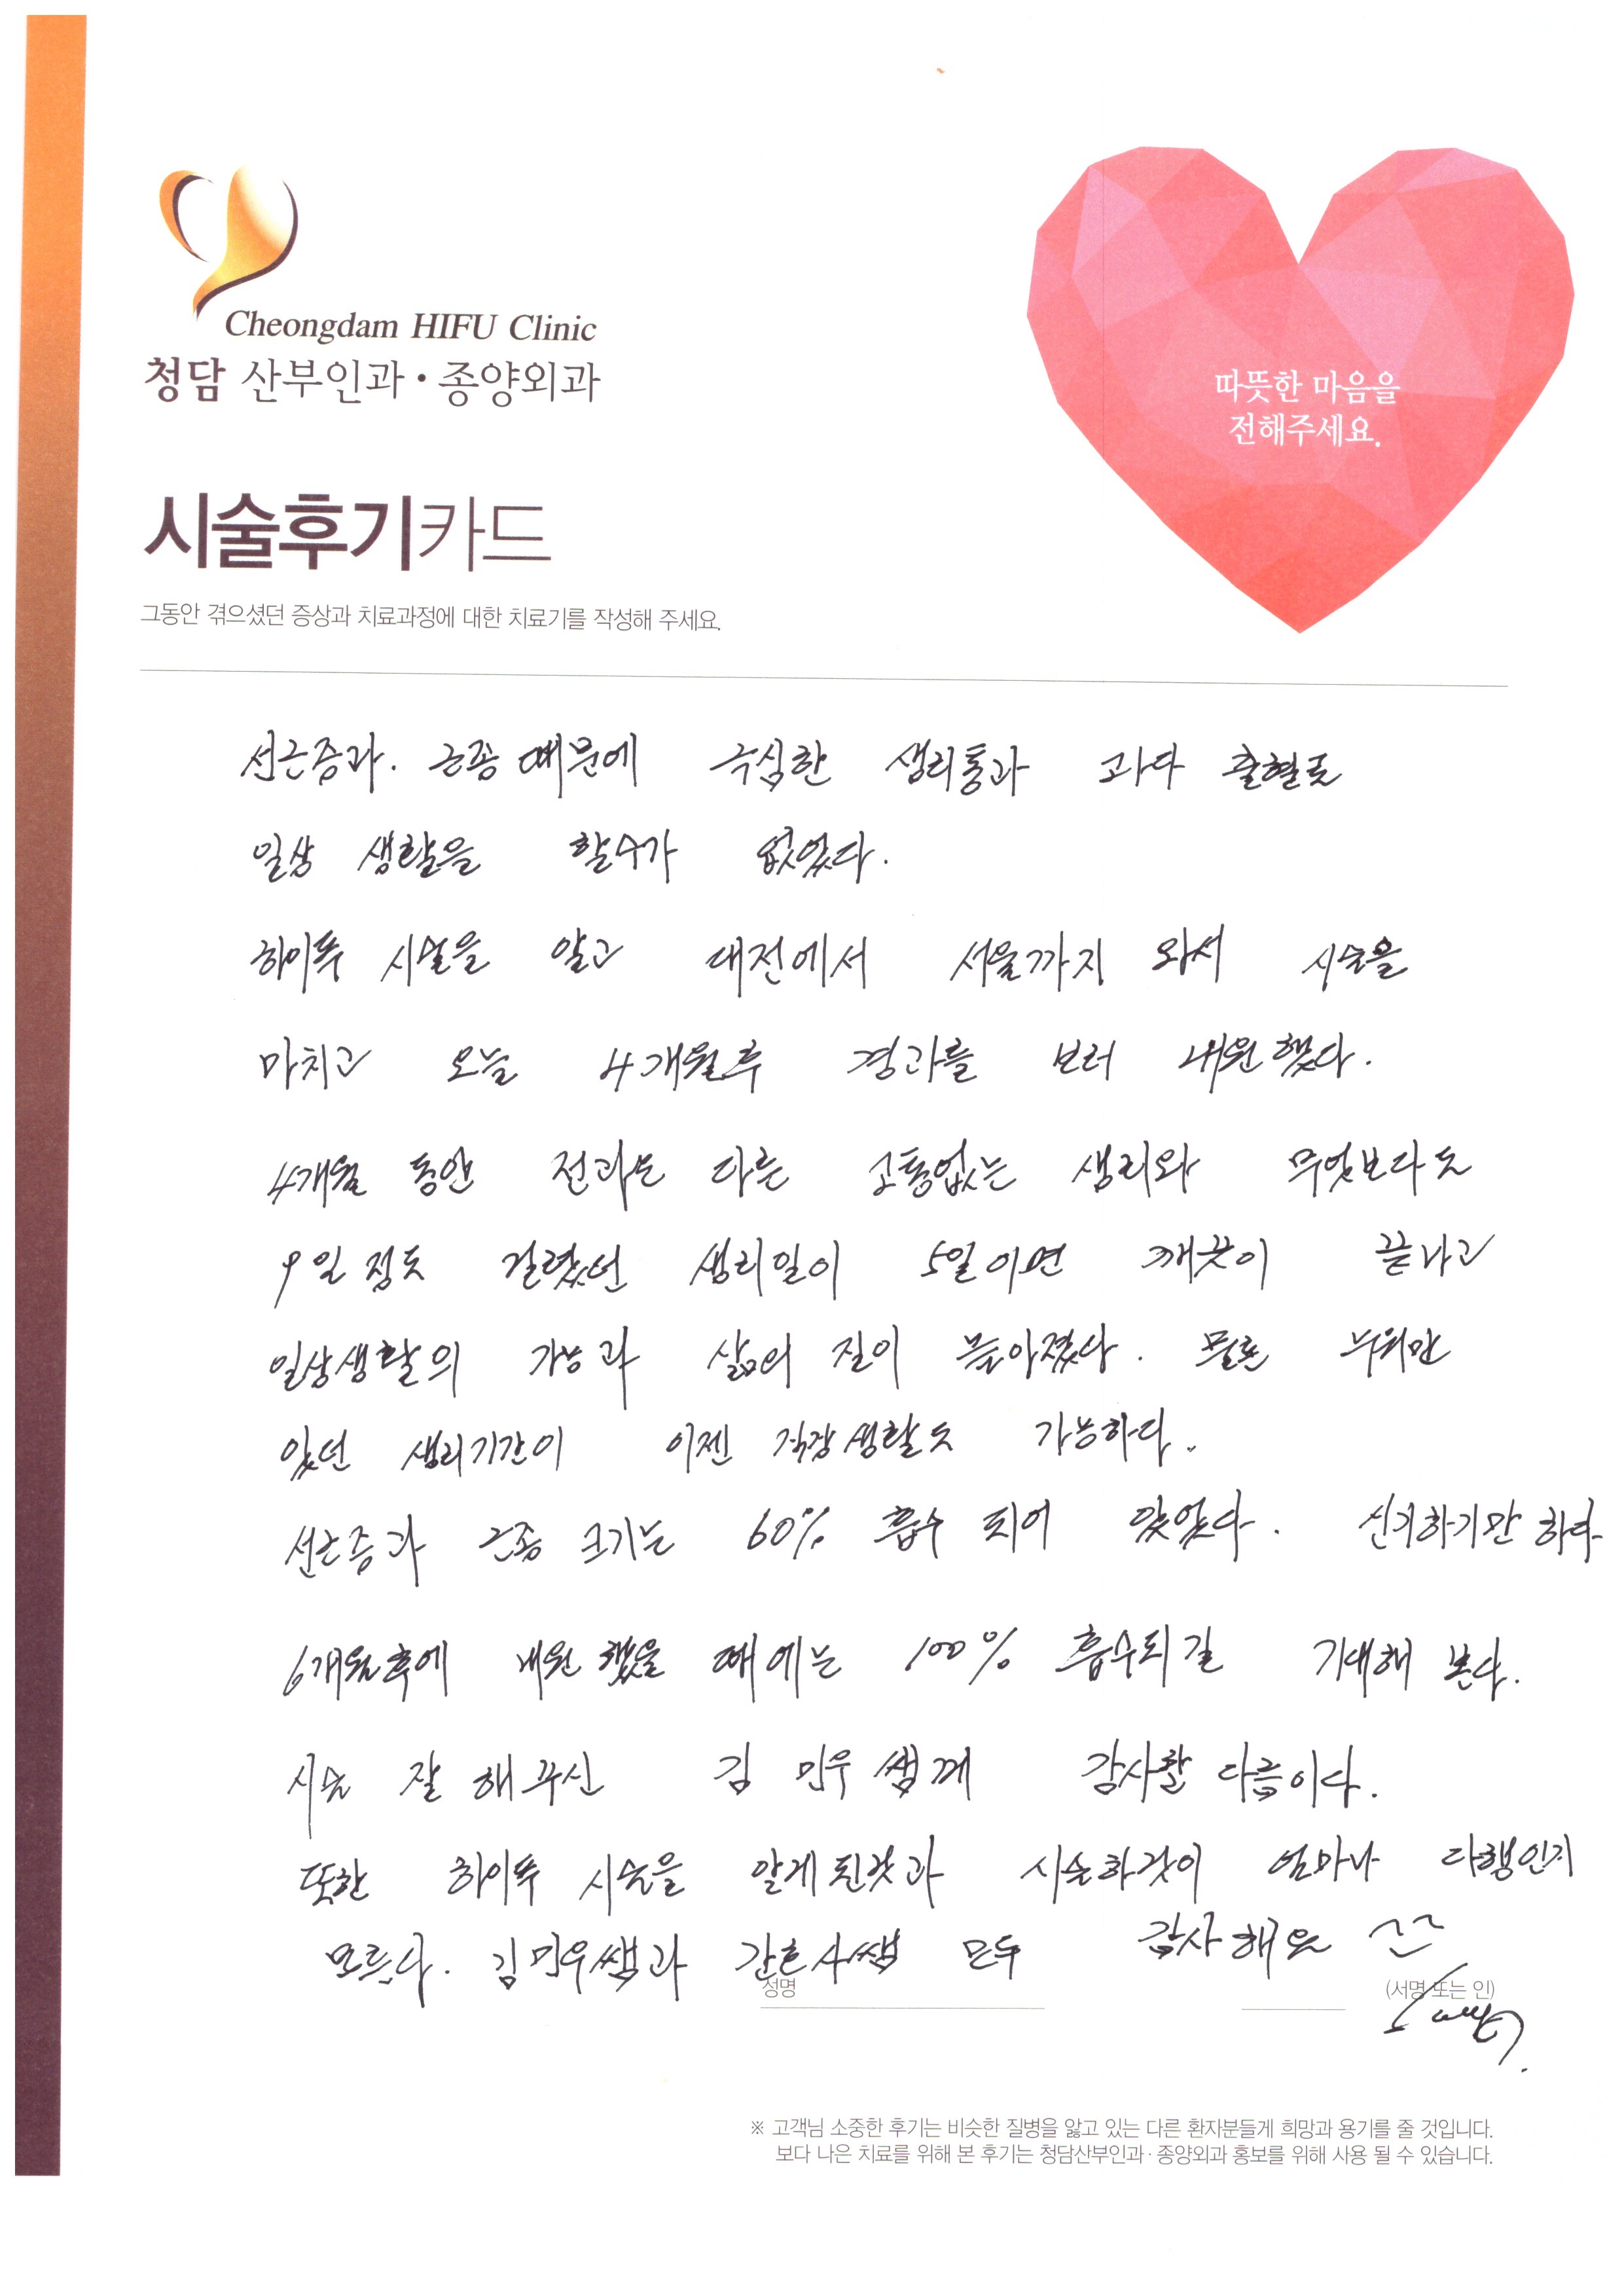 Cheongdam HIFU Clinic
청담 산부인과·종양외과
따뜻한 마음을
전해주세요.
시술후기카드
그동안 겪으셨던 증상과 치료과정에 대한 치료기를 작성해 주세요.
선근증과. 근종 때문에 극심한 생리통과 과다 출혈로
일상 생활을 할수가 없었다.
하이푸 시술을 알고 대전에서 서울까지 와서 시술을
마치고 오늘 4개월후 경과를 보러 내원했다.
4개월 동안 전과는 다른 고통없는 생리와 무엇보다도
9일 정도 걸렸던 생리일이 5일이면 깨끗이 끝나고
일상생활의 가능과 삶의 질이 높아졌다. 물론 누워만
있던 생리기간이 이젠 직장생활도 가능하다.
선근증과 근종 크기는 60% 흡수 되어 있었다. 신기하기만 하다
6개월후에 내원 했을 때에는 100% 흡수되길 기대해 본다.
시술 잘 해주신 김 민우 쌤께 감사할 다름이다.
또한 하이푸 시술을 알게된것과 시술하것이 얼마나 다행인지
모른다. 김민우쌤과 간호사쌤 모두 감사해요
성명
(서명 또는 인)
※ 고객님 소중한 후기는 비슷한 질병을 앓고 있는 다른 환자분들게 희망과 용기를 줄 것입니다.
보다 나은 치료를 위해 본 후기는 청담산부인과·종양외과 홍보를 위해 사용 될 수 있습니다.